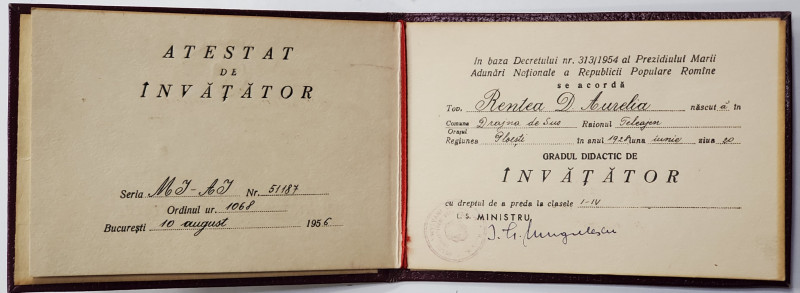 ATESTAT
DE
ÎNVĂȚĂTOR
Seria MI-AI Nr. 51187
Ordinul nr. 1068
București 10 august 1956
În baza Decretului nr. 313/1954 al Prezidiului Marii
Adunări Naționale a Republicii Populare Romîne
se acordă
Tov. Rentea D Aurelia născut ă în
Comuna Drajna de Sus Raionul Teleajen
Orașul
Regiunea Ploești în anul 1928 luna iunie ziua 20
GRADUL DIDACTIC DE
ÎNVĂȚĂTOR
cu dreptul de a preda la clasele I-IV
L. S. MINISTRU,